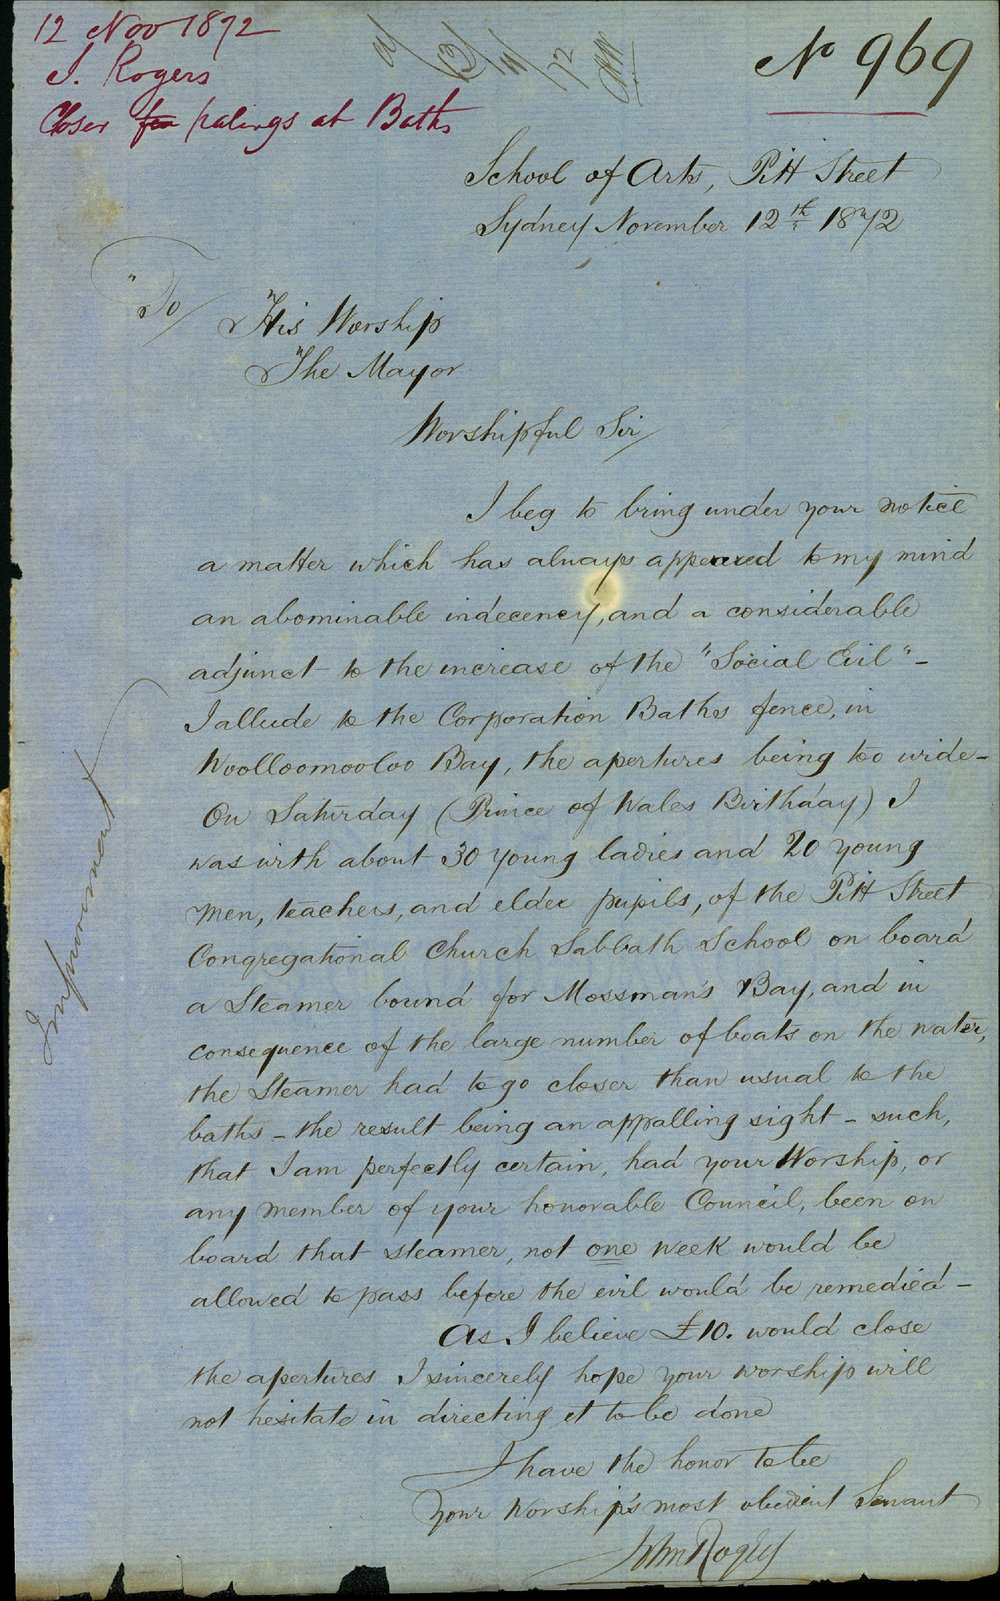 12 Nov 1872
J. Rogers
Closer fen palings at Baths
13/11/72
No 969
School of Arts, Pitt Street
Sydney November 12th 1872
"To
His Worship
The Mayor
Worshipful Sir
I beg to bring under your notice
a matter which has always appeared to my mind
an abominable indecency, and a considerable
adjunct to the increase of the "Social Evil" -
I allude to the Corporation Baths fence, in
Woolloomooloo Bay, the apertures being too wide -
On Saturday (Prince of Wales Birthday) I
was with about 30 young ladies and 20 young
men, teachers, and elder pupils, of the Pitt Street
Congregational Church Sabbath School on board
a Steamer bound for Mossman's Bay, and in
consequence of the large number of boats on the water,
the Steamer had to go closer than usual to the
baths - the result being an appalling sight - such,
that I am perfectly certain, had your Worship, or
any member of your honorable Council, been on
board that steamer, not one week would be
allowed to pass before the evil would be remedied -
As I believe £10. would close
the apertures I sincerely hope your worship will
not hesitate in directing it to be done
I have the honor to be
Your Worship's most obedient Servant
John Rogers
Improvement